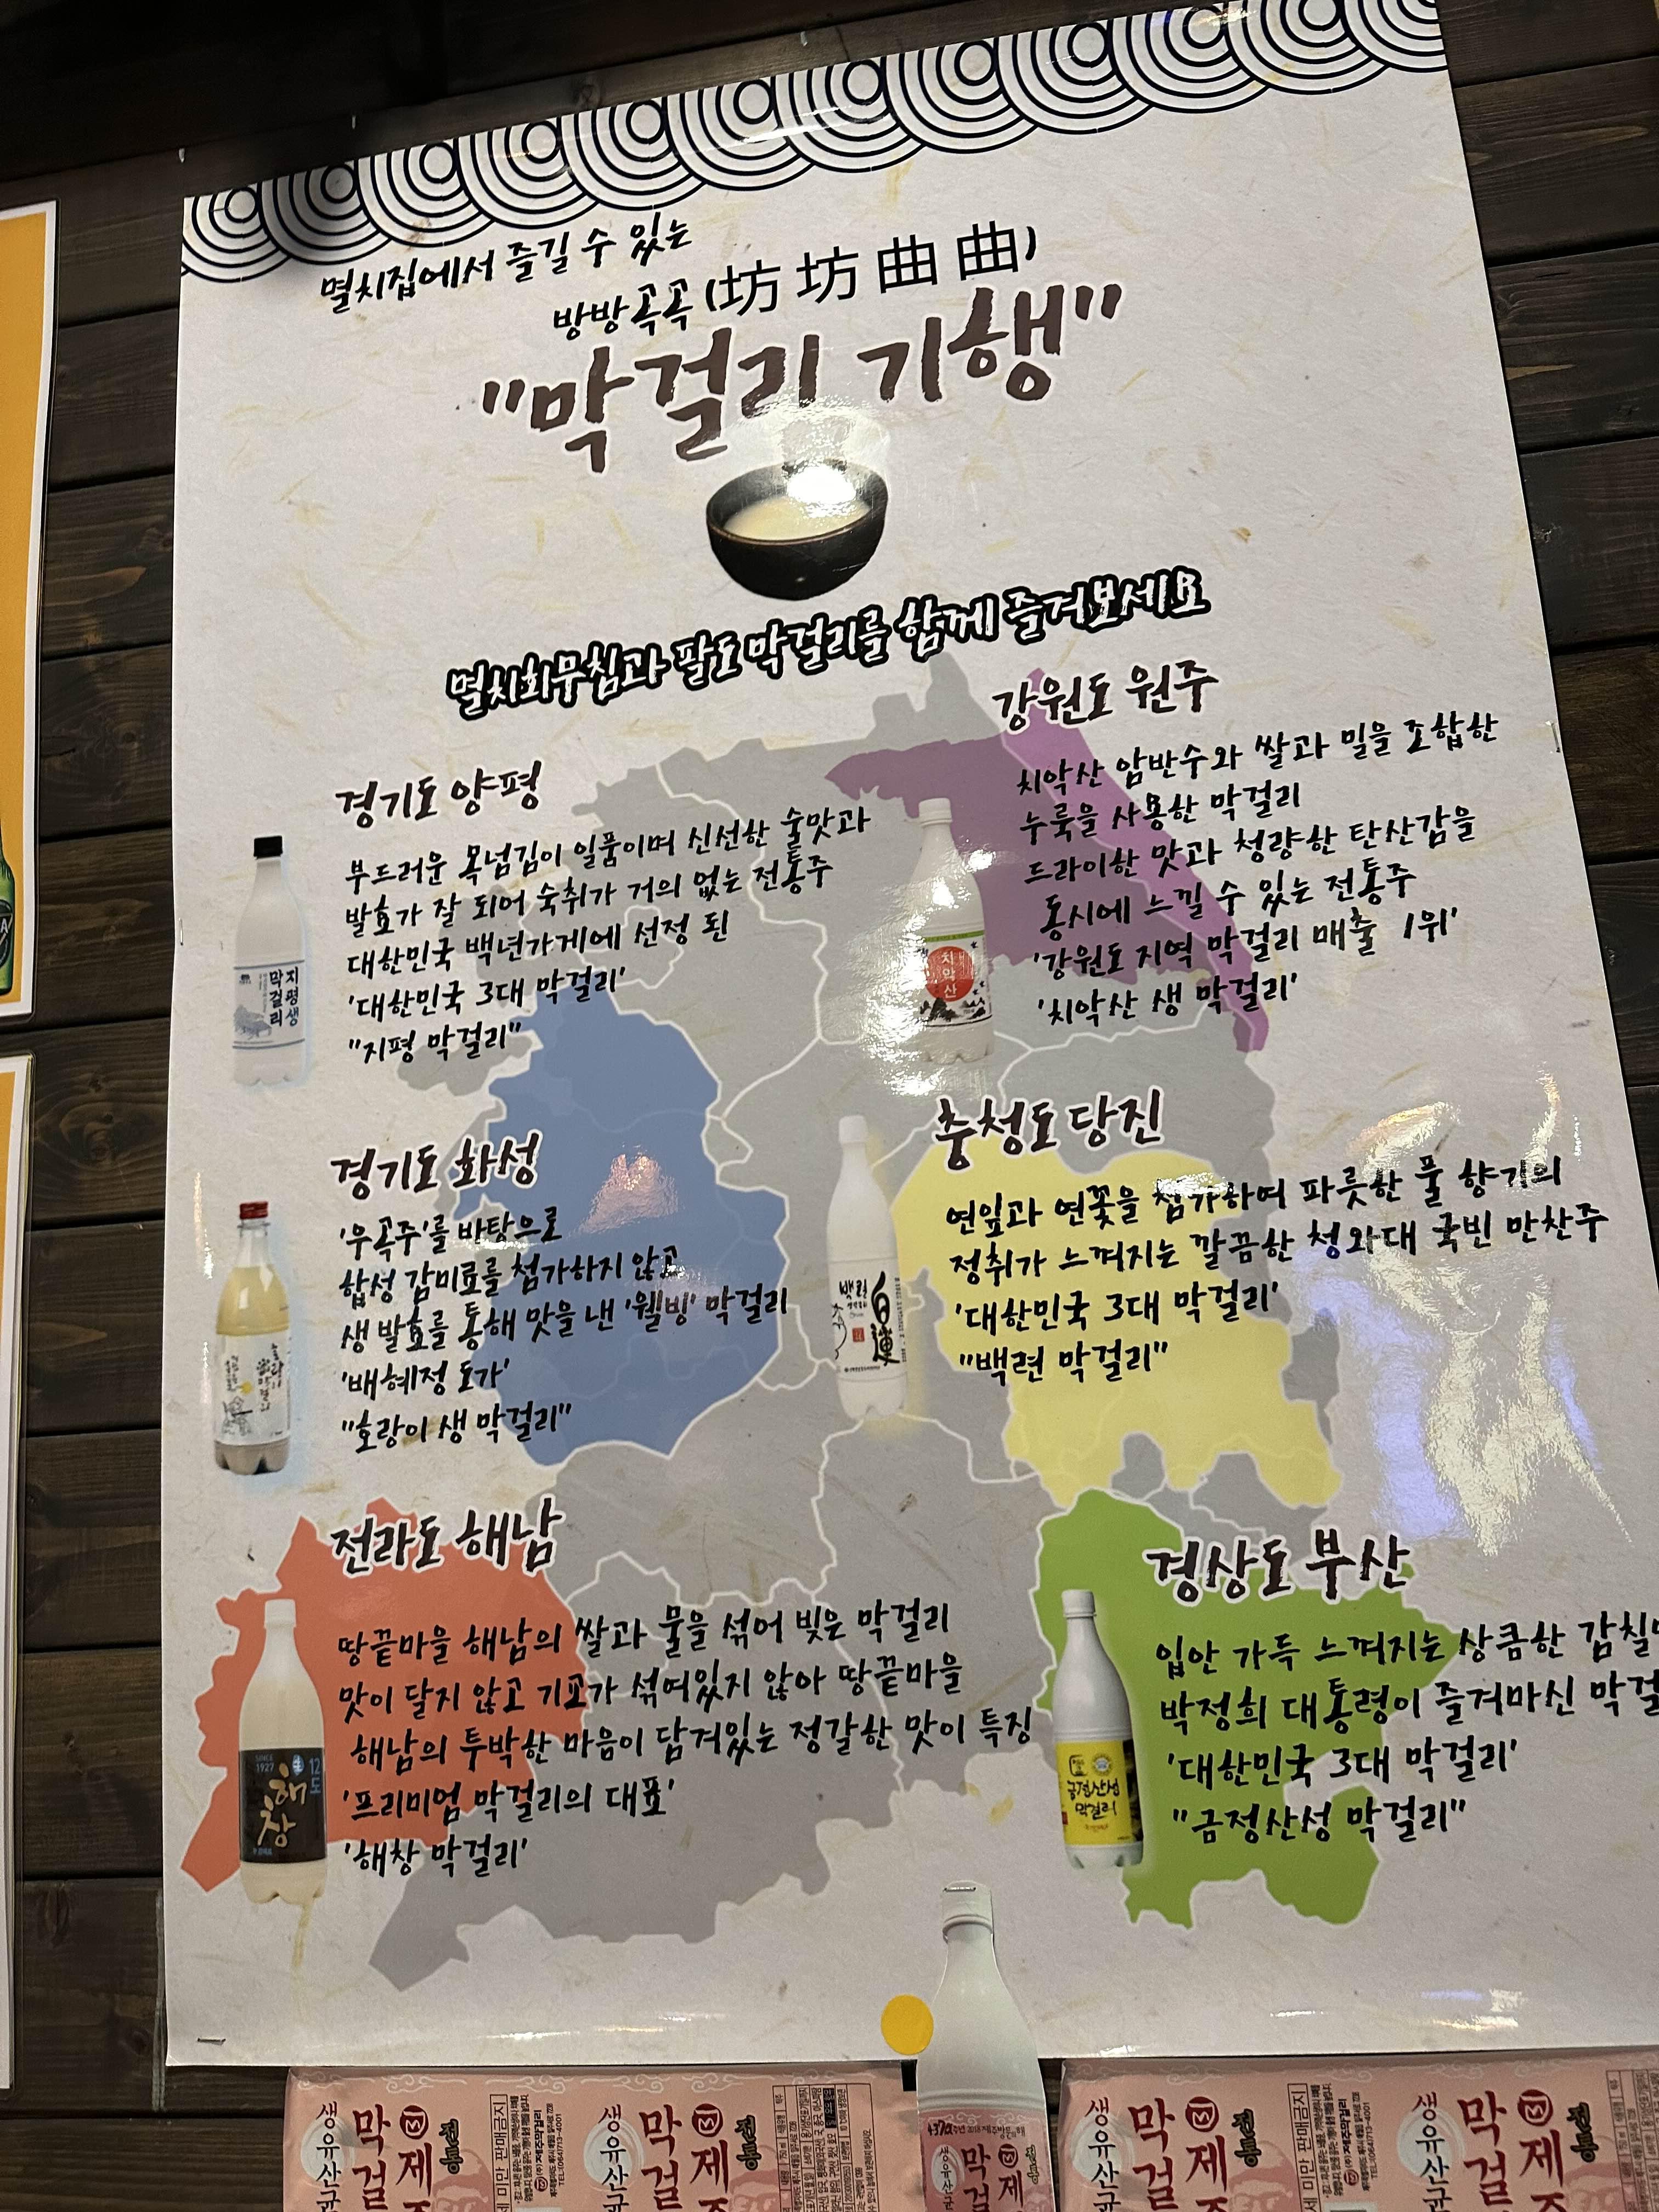 멸치집에서 즐길 수 있는
방방곡곡(坊坊曲曲)
"막걸리 기행"
멸치회무침과 팔도막걸리를 함께 즐겨보세요
경기도 양평
부드러운 목넘김이 일품이며 신선한 술맛과
발효가 잘 되어 숙취가 거의 없는 전통주
대한민국 백년가게에 선정 된
'대한민국 3대 막걸리'
"지평 막걸리"
지평생
막걸리
강원도 원주
치악산 암반수와 쌀과 밀을 조합한
누룩을 사용한 막걸리
드라이한 맛과 청량한 탄산감을
동시에 느낄 수 있는 전통주
'강원도 지역 막걸리 매출 1위'
'치악산 생 막걸리'
치악산
경기도 화성
'우곡주'를 바탕으로
합성 감미료를 첨가하지 않고
생 발효를 통해 맛을 낸 '웰빙' 막걸리
'배혜정 도가'
"호랑이 생 막걸리"
충청도 당진
연잎과 연꽃을 첨가하여 파릇한 풀 향기의
정취가 느껴지는 깔끔한 청와대 국빈 만찬주
'대한민국 3대 막걸리'
"백련 막걸리"
백련
白蓮
전라도 해남
땅끝마을 해남의 쌀과 물을 섞어 빚은 막걸리
맛이 달지 않고 기교가 섞여있지 않아 땅끝마을
해남의 투박한 마음이 담겨있는 정갈한 맛이 특징
'프리미엄 막걸리의 대표'
'해창 막걸리'
SINCE 1927
生 12도
해창
경상도 부산
입안 가득 느껴지는 상큼한
박정희 대통령이 즐겨마신
'대한민국 3대 막걸리'
"금정산성 막걸리"
금정산성
막걸리
생유산균
막걸
제
전통
판매금지
(주)제주막걸리
생유산균
막걸
제
전통
생유산균
막걸
제
생유산
막걸
제
전통
판매금지
(주)제주막걸리
생유산균
막걸
제
전통